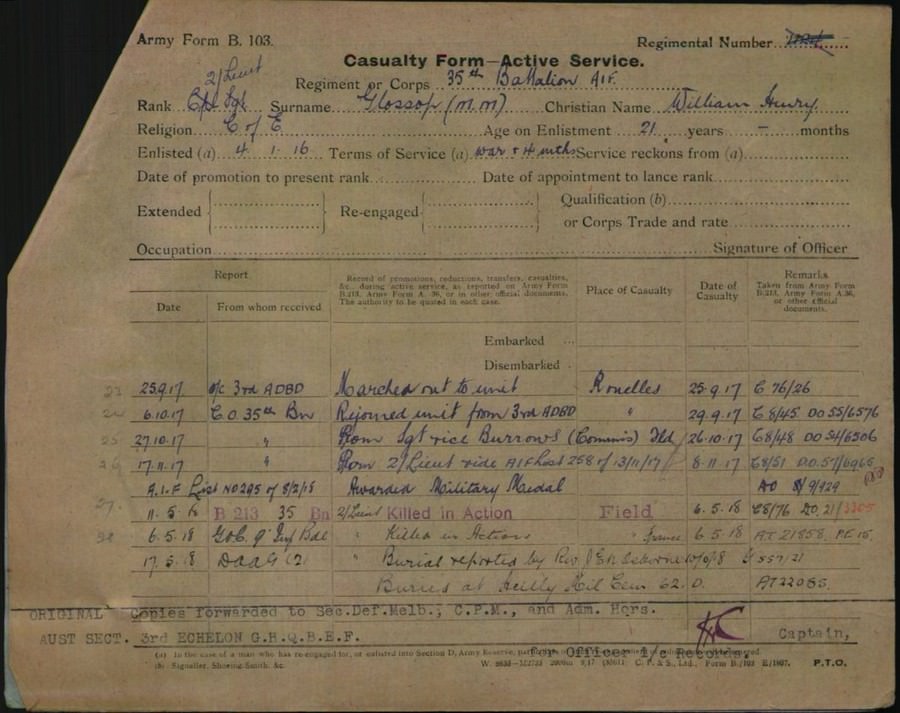 Army Form B. 103.
Regimental Number
Casualty Form—Active Service.
2/Lieut
Regiment or Corps 35th Battalion AIF.
Rank Cpl Sgt Surname Glossop (M.M) Christian Name William Henry
Religion C of E Age on Enlistment 21 years – months
Enlisted (a) 4.1.16 Terms of Service (a) war + 4 mths Service reckons from (a)
Date of promotion to present rank Date of appointment to lance rank
Extended Re-engaged Qualification (b)
or Corps Trade and rate
Occupation Signature of Officer
Report
Date
From whom received
Record of promotions, reductions, transfers, casualties, &c., during active service, as reported on Army Form B.213, Army Form A. 36, or in other official documents. The authority to be quoted in each case.
Place of Casualty
Date of Casualty
Remarks
Taken from Army Form B.213, Army Form A.36, or other official documents.
Embarked ...
Disembarked
23 25.9.17 o/c 3rd ADBD Marched out to unit Rouelles 25.9.17 C 76/26
24 6.10.17 C.O 35th Bn Rejoined unit from 3rd ADBD " 29.9.17 C8/45 DO 55/6576
25 27.10.17 " Prom Sgt vice Burrows (Commis) Fld 26.10.17 C8/48 DO 54/6506
26 17.11.17 " Prom 2/Lieut vide AIF List 258 of 13/11/17 8.11.17 C8/51 D.O.57/6965
A.I.F List No 295 of 8/2/18 Awarded Military Medal DO 8/9/929
27. 11.5.18 B 213 35 Bn 2/Lieut Killed in Action Field 6.5.18 C8/76 DO.21/3305
28 6.5.18 GOC. 9 Inf Bde " Killed in Action " France 6.5.18 AT 21858. PE 15.
17.5.18 DAAG (2) " Burial reported by Rev J E N Osborne 10/5/18 G 557/21
Buried at Heilly Mil Cem 62.D. AT 22085.
ORIGINAL Copies forwarded to Sec.Def.Melb.; C.P.M., and Adm. Hqrs.
AUST SECT. 3rd ECHELON G.H.Q.B.E.F. Captain,
for Officer i/c Records.
(a) In the case of a man who has re-engaged for, or enlisted into Section D, Army Reserve,
(b) Signaller, Shoeing-Smith, &c. C. P. & S., Ltd., Form B./103 E/1807. P.T.O.